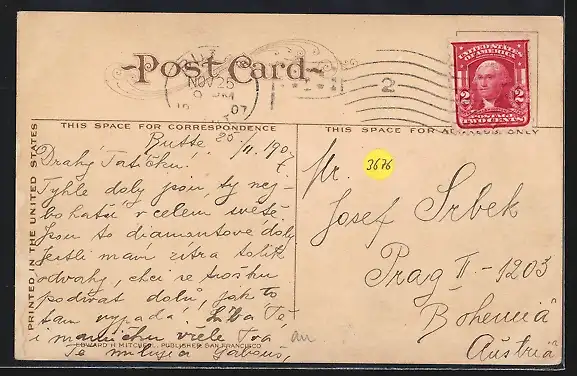 Post Card
NOV 25
07
2
UNITED STATES
OF AMERICA
2 2
POSTAGE
TWO CENTS
THIS SPACE FOR CORRESPONDENCE
THIS SPACE FOR ADDRESS ONLY
PRINTED IN THE UNITED STATES
Butte 25/11. 1907
Drahý Tatíčku!
Tyhle doly jsou ty nej-
bohatší v celém světě.
Jsou to diamantové doly
Jestli mám zítra tolik
odvahy, chci se trochu
podívat dolů, jak to
tam vypadá. Líbá Tě
i matičku vřele Tvá
Tě milující
EDWARD H. MITCHELL, PUBLISHER, SAN FRANCISCO
3676
Josef Srbek
Prag II - 1203
Bohemia
Austria